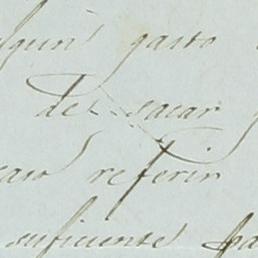 algun gasto
de sacar
caso referir
suficiente pa